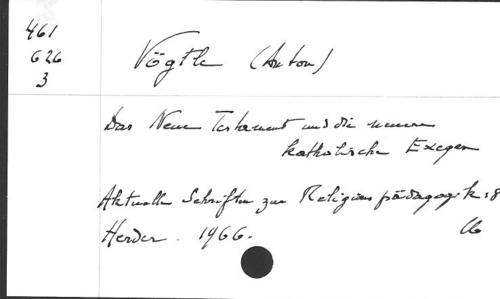 461
G26
3
Vögtle (Anton)
Das Neue Testament und die neuere
katholische Exegese
Aktuelle Schriften zur Religionspädagogik : 8
Herder. 1966.